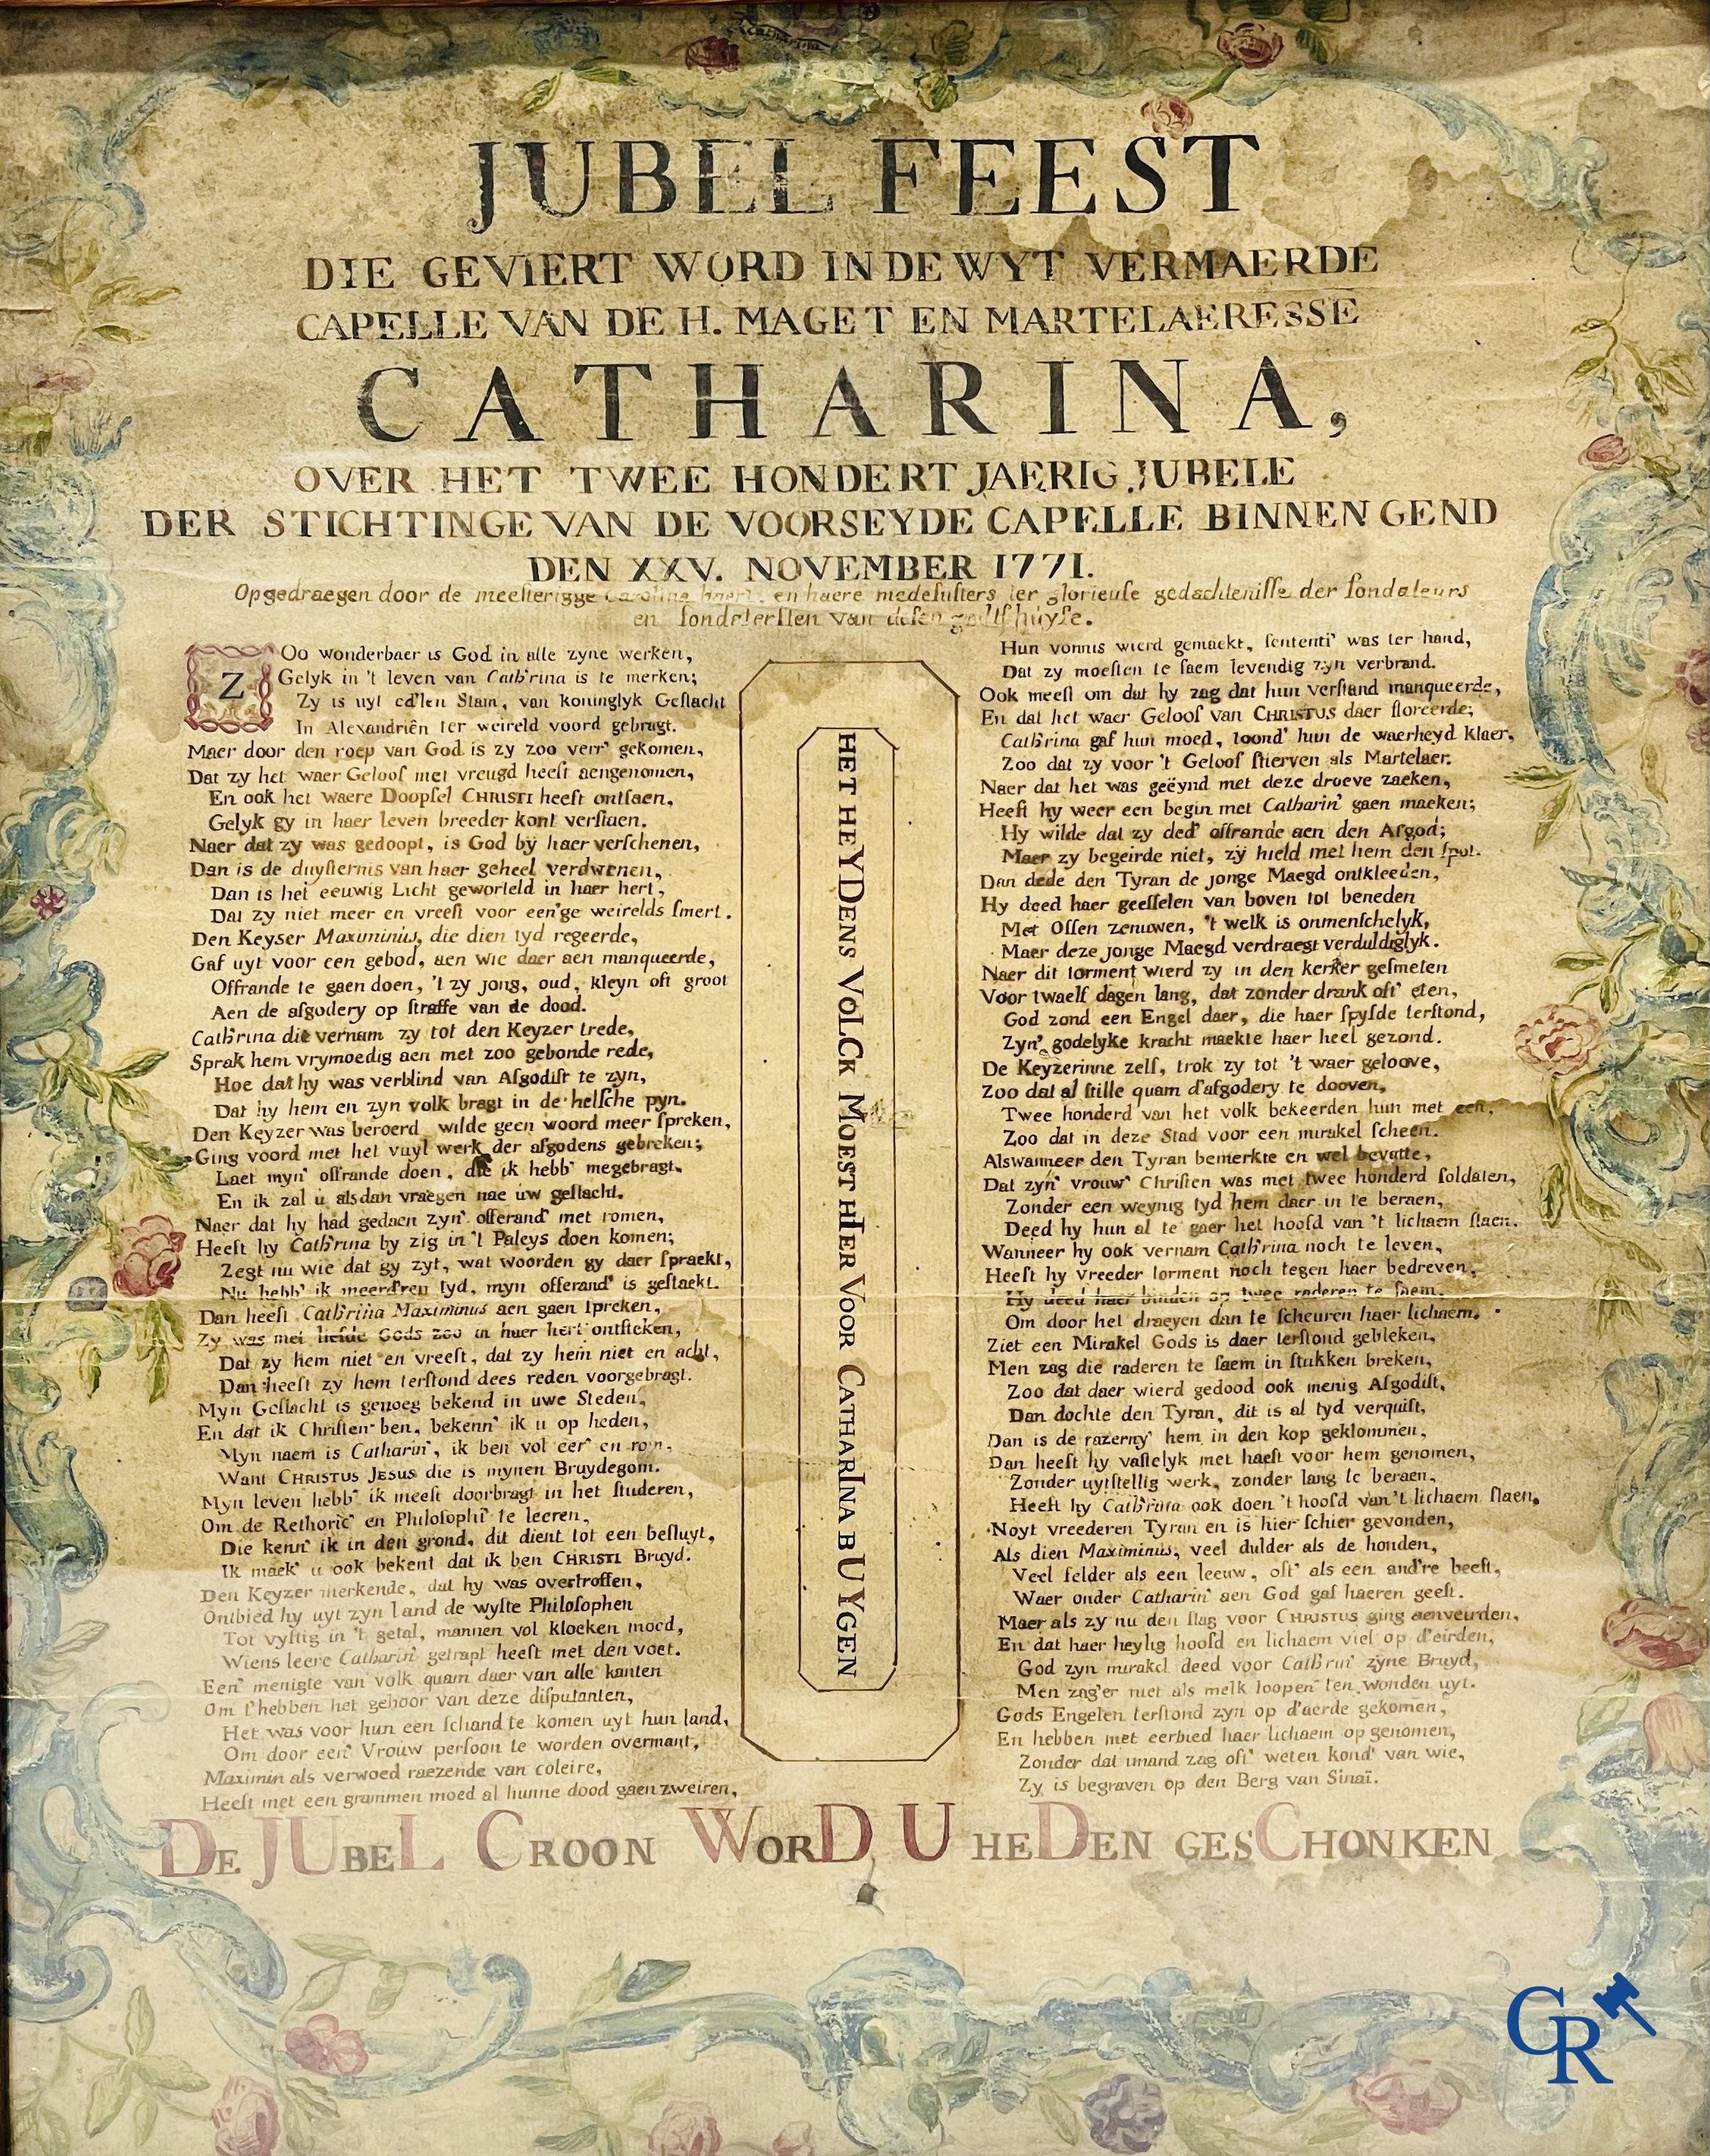 Catharina
JUBEL FEEST
DIE GEVIERT WORD IN DE WYT VERMAERDE
CAPELLE VAN DE H. MAGET EN MARTELAERESSE
CATHARINA,
OVER HET TWEE HONDERT JAERIG JUBELE
DER STICHTINGE VAN DE VOORSEYDE CAPELLE BINNEN GEND
DEN XXV. NOVEMBER 1771.
Opgedraegen door de meesterigge Carolina en haere medesusters ter glorieuse gedachtenisse der fondateurs
en fondaterssen van desen godtshuyse.
ZOo wonderbaer is God in alle zyne werken,
Gelyk in 't leven van Cath'rina is te merken;
Zy is uyt ed'len Stam, van koninglyk Geslacht
In Alexandriën ter weireld voord gebragt.
Maer door den roep van God is zy zoo verr' gekomen,
Dat zy het waer Geloof met vreugd heeft aengenomen,
En ook het waere Doopsel CHRISTI heeft ontfaen,
Gelyk gy in haer leven breeder kont verstaen.
Naer dat zy was gedoopt, is God by haer verschenen,
Dan is de duysternis van haer geheel verdwenen,
Dan is het eeuwig Licht geworteld in haer hert,
Dat zy niet meer en vreest voor een'ge weirelds smert.
Den Keyser Maximinus, die dien tyd regeerde,
Gaf uyt voor een gebod, aen wie daer aen manqueerde,
Offrande te gaen doen, 't zy jong, oud, kleyn oft groot
Aen de afgodery op straffe van de dood.
Cath'rina die vernam zy tot den Keyzer trede,
Sprak hem vrymoedig aen met zoo gebonde rede,
Hoe dat hy was verblind van Afgodist te zyn,
Dat hy hem en zyn volk bragt in de helsche pyn.
Den Keyzer was beroerd wilde geen woord meer spreken,
Ging voord met het vuyl werk der afgodens gebreken;
Laet myn' offrande doen, die ik hebb' megebragt,
En ik zal u alsdan vraegen nae uw geslacht.
Naer dat hy had gedaen zyn' offerand' met romen,
Heeft hy Cath'rina by zig in 't Paleys doen komen;
Zegt nu wie dat gy zyt, wat woorden gy daer spraekt,
Nu hebb' ik meerd'ren tyd, myn offerand' is gestaekt.
Dan heeft Cath'rina Maximinus aen gaen spreken,
Zy was met liefde Gods zoo in haer hert ontsteken,
Dat zy hem niet en vreest, dat zy hem niet en acht,
Dan heeft zy hem terstond dees reden voorgebragt.
Myn Geslacht is genoeg bekend in uwe Steden,
En dat ik Christen ben, bekenn' ik u op heden,
Myn naem is Catharin', ik ben vol eer' en rom,
Want CHRISTUS JESUS die is mynen Bruydegom.
Myn leven hebb' ik meest doorbragt in het studeren,
Om de Rethoric' en Philosophi' te leeren,
Die kenn' ik in den grond, dit dient tot een besluyt,
Ik maek' u ook bekent dat ik ben CHRISTI Bruyd.
Den Keyzer merkende, dat hy was overtroffen,
Ontbied hy uyt zyn land de wyste Philosophen
Tot vyftig in 't getal, mannen vol kloeken moed,
Wiens leere Catharin' getrapt heeft met den voet.
Een' menigte van volk quam daer van alle kanten
Om t'hebben het gehoor van deze disputanten,
Het was voor hun een schand te komen uyt hun land,
Om door een' Vrouw persoon te worden overmant,
Maximin als verwoed raezende van coleire,
Heeft met een grammen moed al hunne dood gaen zweiren,
HET HEYDENS VOLCK MOEST HIER VOOR CATHARINA BUYGEN
Hun vonnis wierd gemaekt, sententi' was ter hand,
Dat zy moesten te saem levendig zyn verbrand.
Ook meest om dat hy zag dat hun verstand manqueerde,
En dat het waer Geloof van CHRISTUS daer floreerde;
Cath'rina gaf hun moed, toond' hun de waerheyd klaer,
Zoo dat zy voor 't Geloof stierven als Martelaer.
Naer dat het was geëynd met deze droeve zaeken,
Heeft hy weer een begin met Catharin' gaen maeken;
Hy wilde dat zy ded' offrande aen den Afgod;
Maer zy begeirde niet, zy hield met hem den spot.
Dan dede den Tyran de jonge Maegd ontkleeden,
Hy deed haer geesselen van boven tot beneden
Met Ossen zenuwen, 't welk is onmenschelyk,
Maer deze jonge Maegd verdraegt verduldiglyk.
Naer dit torment wierd zy in den kerker gesmeten
Voor twaelf dagen lang, dat zonder drank oft' eten,
God zond een Engel daer, die haer spysde terstond,
Zyn' godelyke kracht maekte haer heel gezond.
De Keyzerinne zelf, trok zy tot 't waer geloove,
Zoo dat al stille quam d'afgodery te dooven,
Twee honderd van het volk bekeerden hun met een,
Zoo dat in deze Stad voor een mirakel scheen.
Alswanneer den Tyran bemerkte en wel bevatte,
Dat zyn' vrouw' Christen was met twee honderd soldaten,
Zonder een weynig tyd hem daer in te beraen,
Deed hy hun al te gaer het hoofd van 't lichaem slaen.
Wanneer hy ook vernam Cath'rina noch te leven,
Heeft hy vreeder torment noch tegen haer bedreven,
Hy deed haer binden op twee raderen te saem,
Om door het draeyen dan te scheuren haer lichaem.
Ziet een Mirakel Gods is daer terstond gebleken,
Men zag die raderen te saem in stukken breken,
Zoo dat daer wierd gedood ook menig Afgodist,
Dan dochte den Tyran, dit is al tyd verquist,
Dan is de razerny' hem in den kop geklommen,
Dan heeft hy vastelyk met haest voor hem genomen,
Zonder uytstellig werk, zonder lang te beraen,
Heeft hy Cath'rina ook doen 't hoofd van 't lichaem slaen,
Noyt vreederen Tyran en is hier schier gevonden,
Als dien Maximinus, veel dulder als de honden,
Veel felder als een leeuw, oft' als een and're beest,
Waer onder Catharin' aen God gaf haeren geest.
Maer als zy nu den slag voor CHRISTUS ging aenveirden,
En dat haer heylig hoofd en lichaem viel op d'eirden,
God zyn mirakel deed voor Cath'rin' zyne Bruyd,
Men zag'er niet als melk loopen ten wonden uyt.
Gods Engelen terstond zyn op d'aerde gekomen,
En hebben met eerbied haer lichaem op genomen,
Zonder dat imand zag oft' weten kond' van wie,
Zy is begraven op den Berg van Sinaï.
DE JUBEL CROON WORD U HEDEN GESCHONKEN
CR